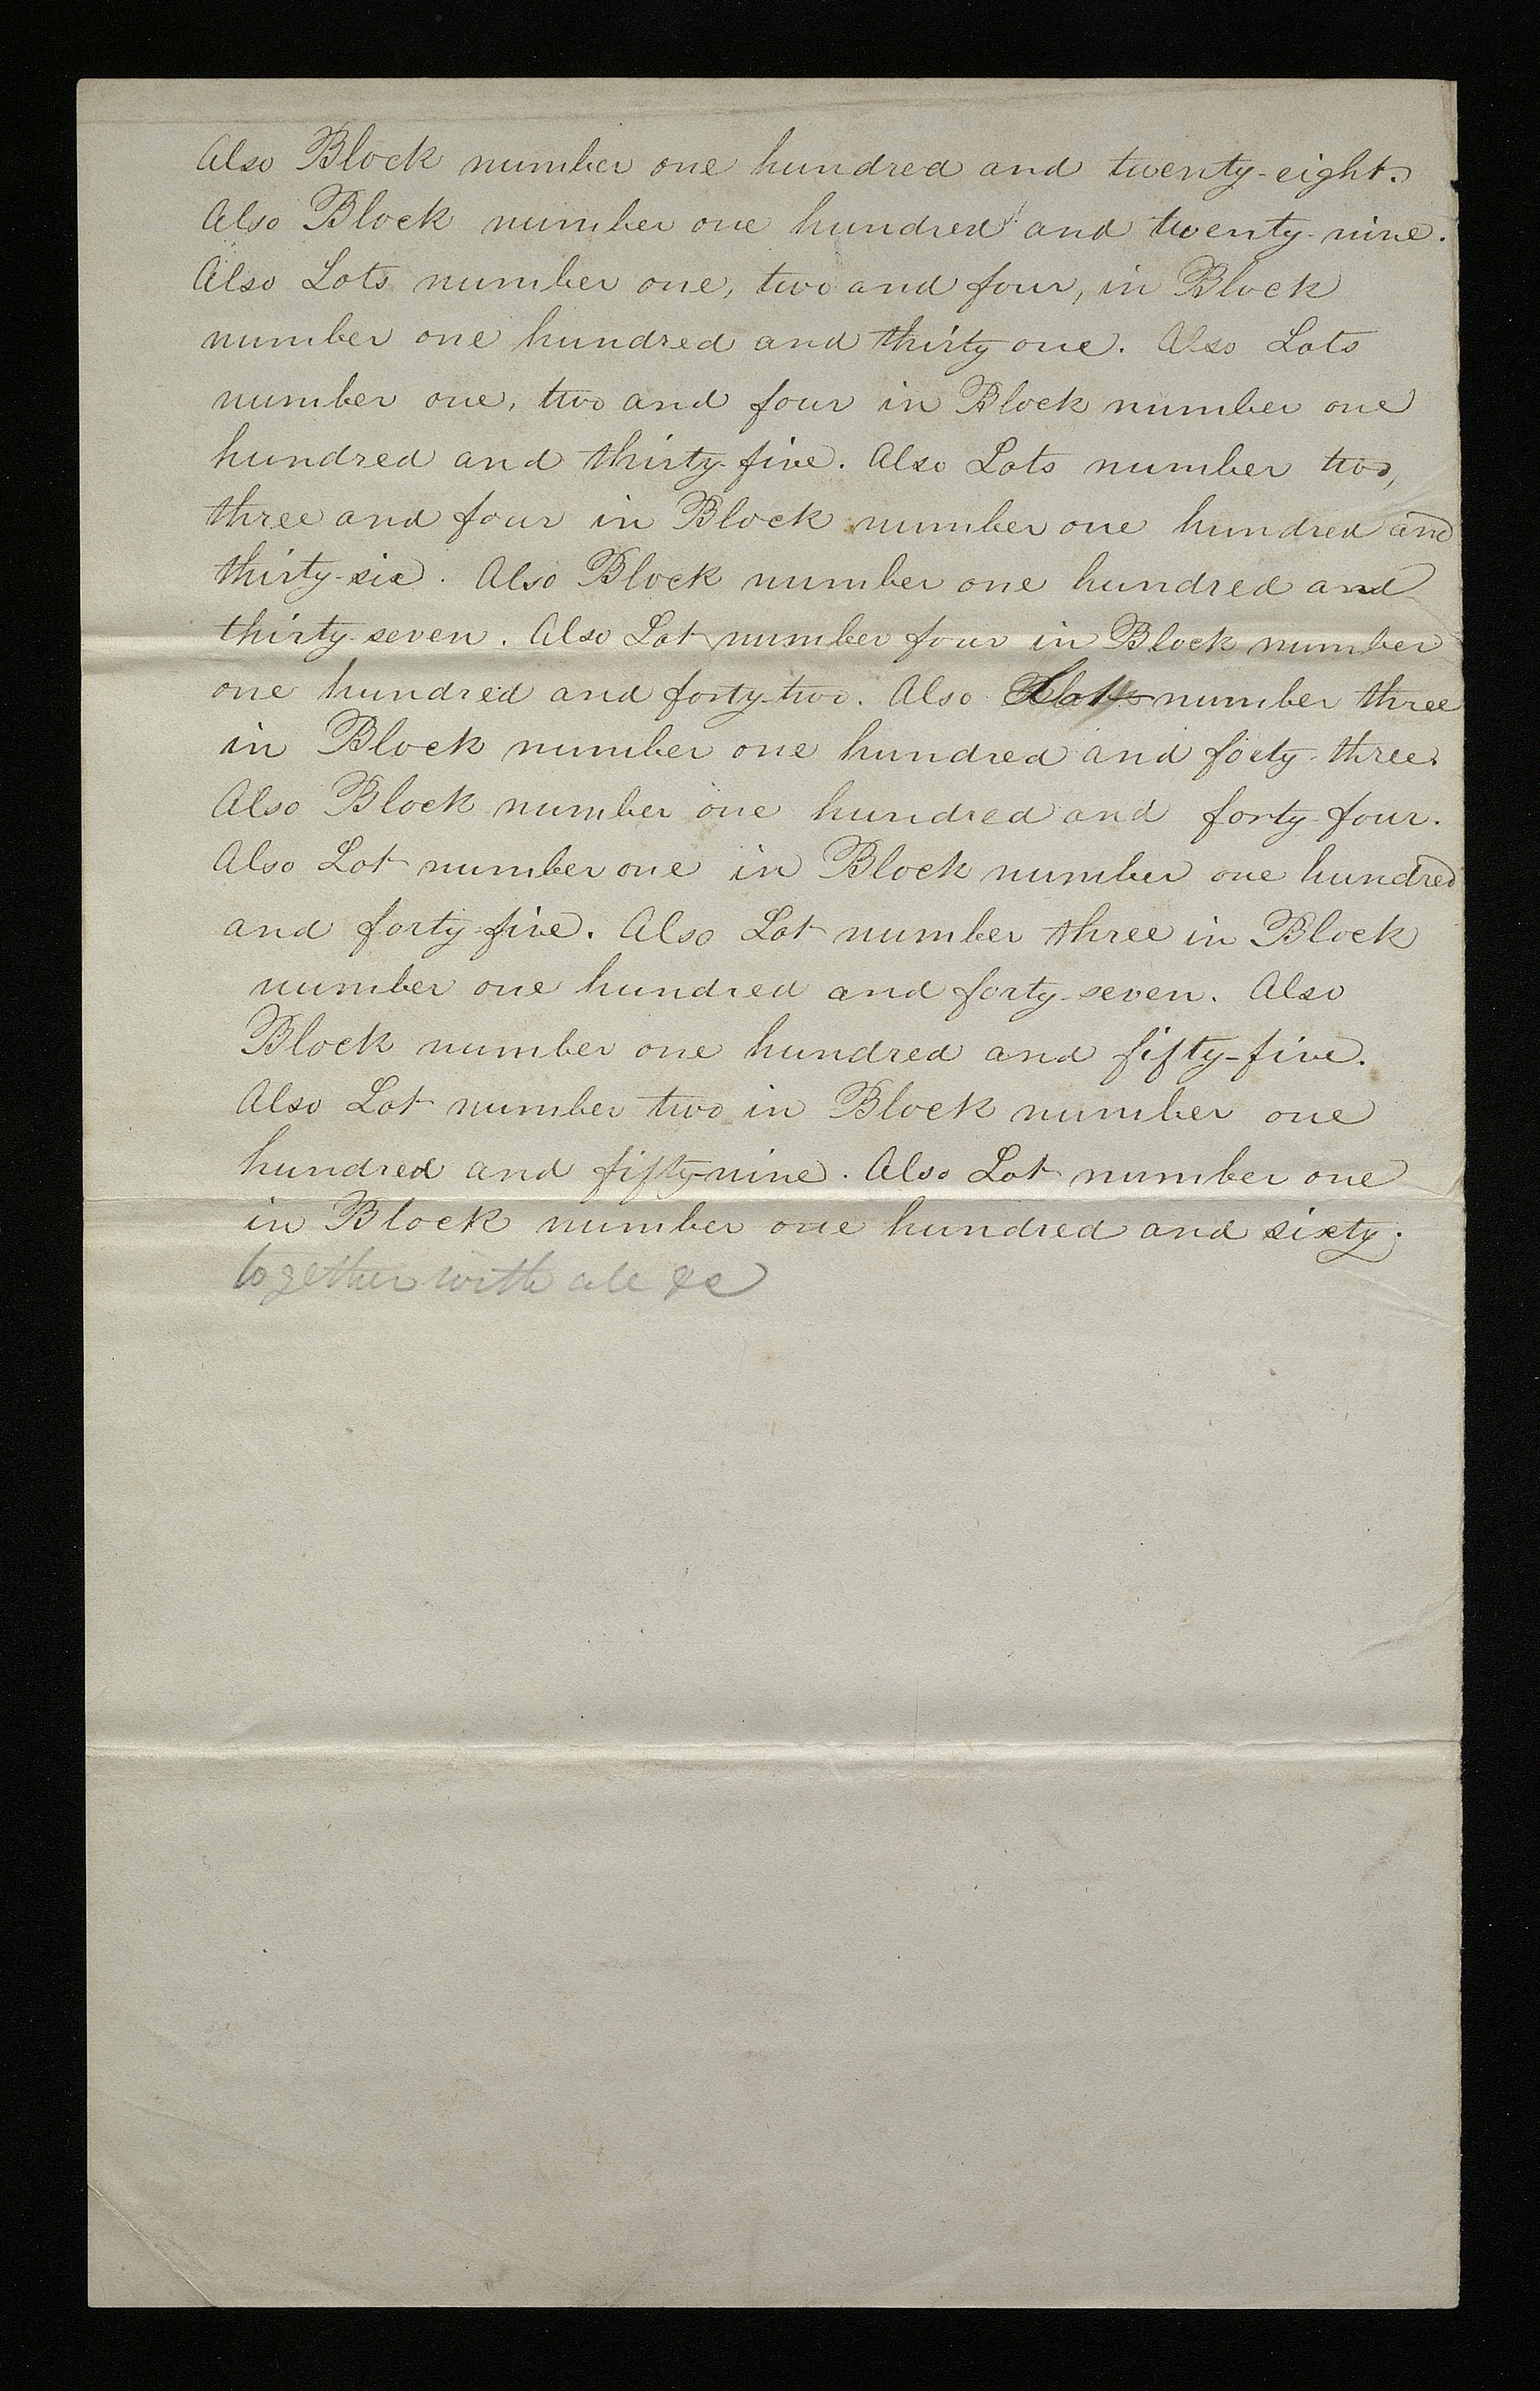 Also Block number one hundred and twenty-eight.
Also Block number one hundred and twenty-nine.
Also Lots number one, two and four, in Block
number one hundred and thirty one. Also Lots
number one, two and four in Block number one
hundred and thirty-five. Also Lots number two,
three and four in Block number one hundred and
thirty-six. Also Block number one hundred and
thirty-seven. Also Lot number four in Block number
one hundred and forty-two. Also Lot number three
in Block number one hundred and forty-three.
Also Block number one hundred and forty-four.
Also Lot number one in Block number one hundred
and forty-five. Also Lot number three in Block
number one hundred and forty-seven. Also
Block number one hundred and fifty-five.
Also Lot number two in Block number one
hundred and fifty-nine. Also Lot number one
in Block number one hundred and sixty.
together with all &c